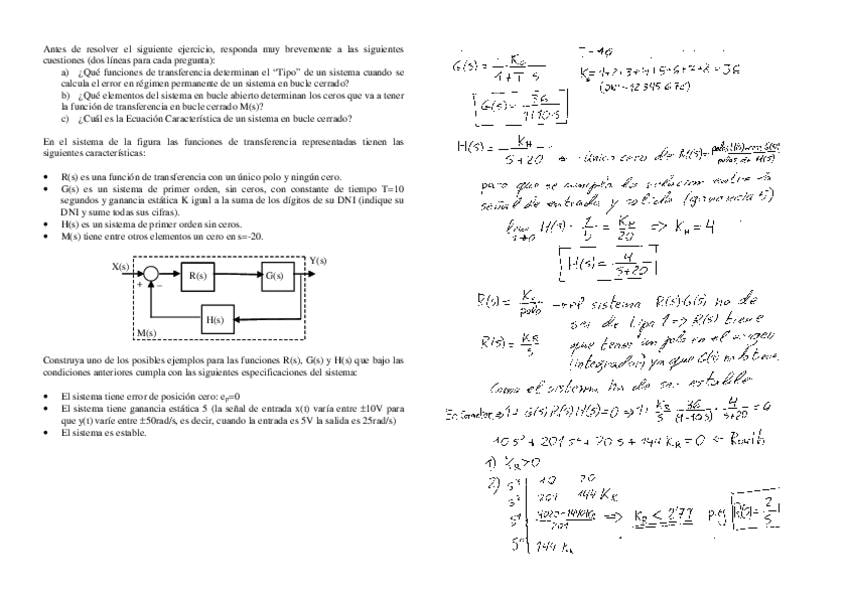 Antes de resolver el siguiente ejercicio, responda muy brevemente a las siguientes
cuestiones (dos líneas para cada pregunta):
a) ¿Qué funciones de transferencia determinan el “Tipo” de un sistema cuando se
calcula el error en régimen permanente de un sistema en bucle cerrado?
b) ¿Qué elementos del sistema en bucle abierto determinan los ceros que va a tener
la función de transferencia en bucle cerrado M(s)?
c) ¿Cuál es la Ecuación Característica de un sistema en bucle cerrado?
En el sistema de la figura las funciones de transferencia representadas tienen las
siguientes características:
• R(s) es una función de transferencia con un único polo y ningún cero.
• G(s) es un sistema de primer orden, sin ceros, con constante de tiempo T=10
segundos y ganancia estática K igual a la suma de los dígitos de su DNI (indique su
DNI y sume todas sus cifras).
• H(s) es un sistema de primer orden sin ceros.
• M(s) tiene entre otros elementos un cero en s=-20.
X(s)
Y(s)
R(s)
G(s)
+
–
H(s)
M(s)
Construya uno de los posibles ejemplos para las funciones R(s), G(s) y H(s) que bajo las
condiciones anteriores cumpla con las siguientes especificaciones del sistema:
• El sistema tiene error de posición cero: ep=0
• El sistema tiene ganancia estática 5 (la señal de entrada x(t) varía entre ±10V para
que y(t) varíe entre ±50rad/s, es decir, cuando la entrada es 5V la salida es 25rad/s)
• El sistema es estable.
G(s) =
1+T s
K=1+2+3+4+5+6+7+8=36
(DNI=12345678)
G(s)= 36
1+10·s
H(s) = KH
s+20
único cero de M(s)=
para que se cumpla la relación entre la
señal de entrada y salida (ganancia 5)
H(s) · 1
5 = KH
20 => KH = 4
H(s)= 4
s+20
R(s) =
polo
el sistema R(s)·G(s) ha de
ser de tipo 1 => R(s) tiene
R(s) = KR
s
que tener un polo en el origen
(integrador) ya que G(s) no lo tiene.
Como el sistema ha de ser estable
1+G(s)R(s)H(s)=0 => 1+ KR
s · 36
(1+10s) · 4
s+20 = 0
10s³ + 201s² + 20s + 144KR = 0
1) KR>0
2) s³ 10 20
s² 201 144KR
s¹ 4020-1440KR
201 => KR < 2'79
s⁰ 144KR
p.ej R(s)= 2
s